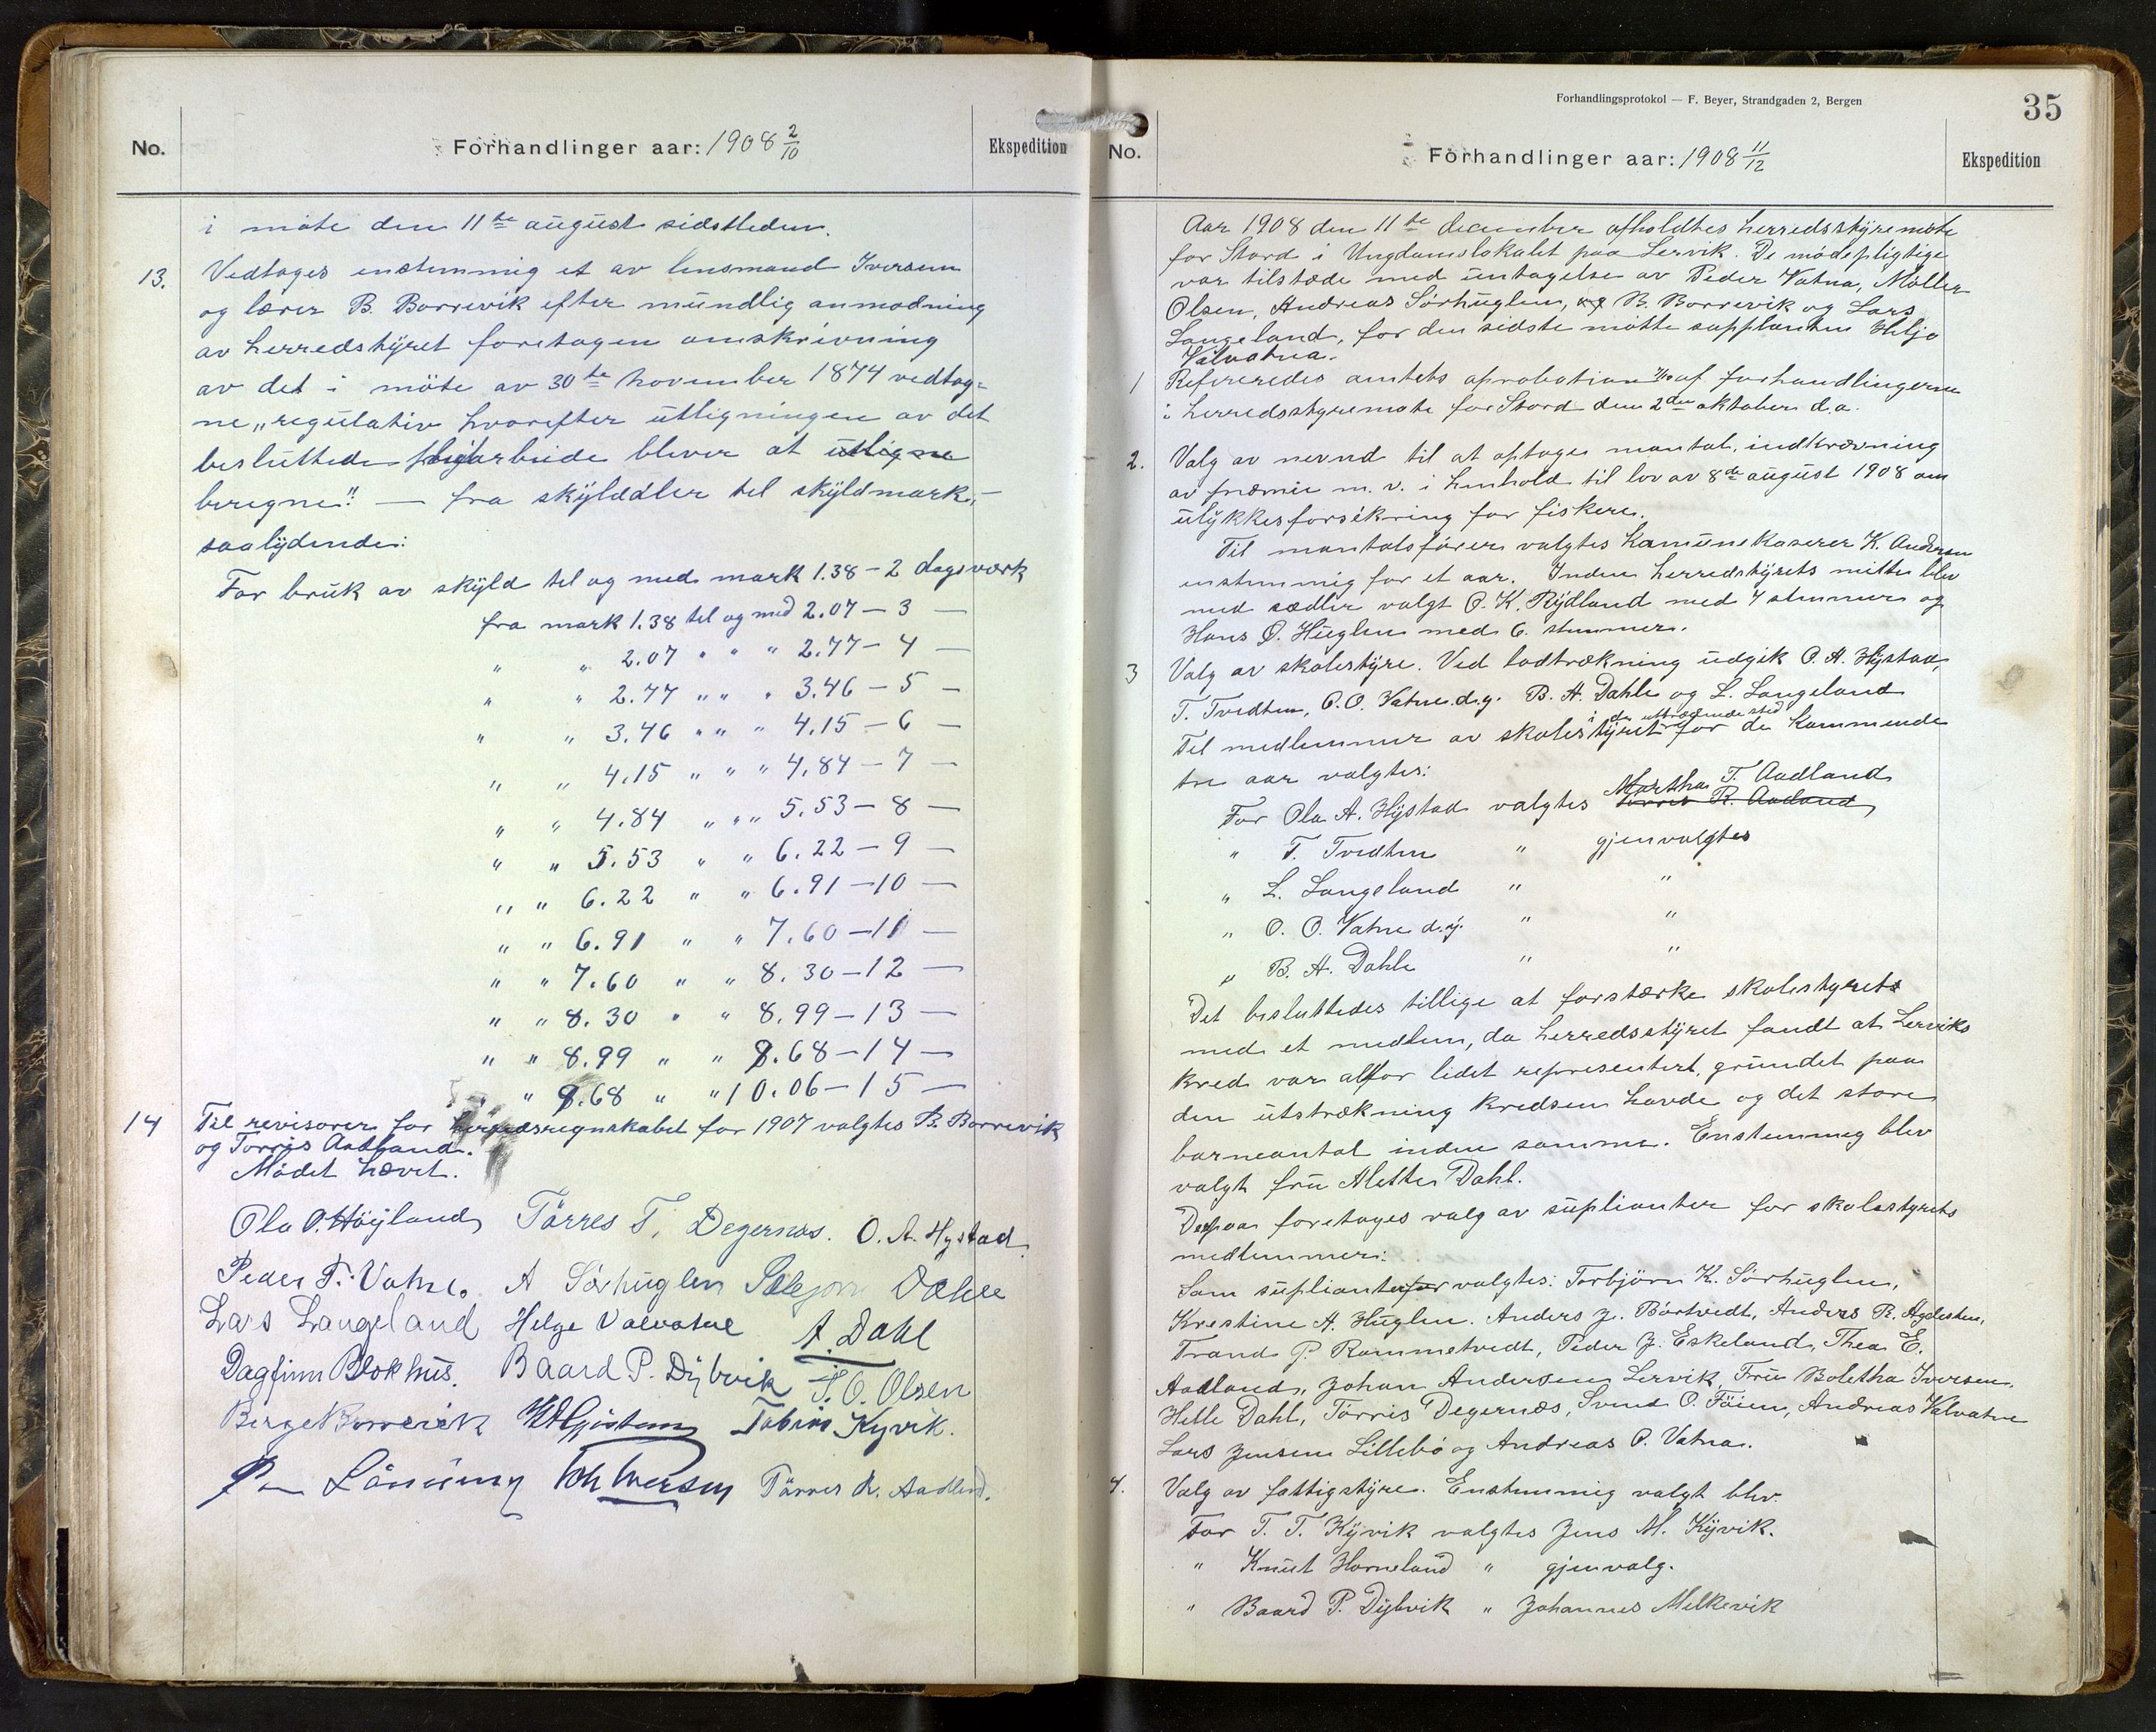 No.
Forhandlinger aar: 1908 2/10
Ekspedition
i møte den 11te august sidstleden.
13. Vedtages enstemmig et av lensmand Iversen
og lærer B. Borrevik efter mundlig anmodning
av herredstyret foretagen omskrivning
av det i møte av 30te november 1874 vedtag-
ne „regulativ hvorefter utligningen av det
besluttede pligtarbeide bliver at utligne
beregne" — fra skylddaler til skyldmark, —
saalydende:
For bruk av skyld til og med mark 1.38 — 2 dagsverk
fra mark 1.38 til og med 2.07 — 3 —
" " 2.07 " " " 2.77 — 4 —
" " 2.77 " " " 3.46 — 5 —
" " 3.46 " " " 4.15 — 6 —
" " 4.15 " " " 4.84 — 7 —
" " 4.84 " " " 5.53 — 8 —
" " 5.53 " " 6.22 — 9 —
" " 6.22 " " 6.91 — 10 —
" " 6.91 " " 7.60 — 11 —
" " 7.60 " " 8.30 — 12 —
" " 8.30 " " 8.99 — 13 —
" " 8.99 " " 9.68 — 14 —
" " 9.68 " " 10.06 — 15 —
14 Til revisorer for herredsregnskabet for 1907 valgtes B. Borrevik
og Torris Aadland.
Mødet hævet.
Ola O. Höyland Törres T. Degernæs. O. A. Hystad
Peder T. Vatne. A Sörhuglen Dahle
Lars Langeland Helge Valvatne A. Dahl
Dagfinn Blokhus. Baard P. Dybvik T. O. Olsen
Børge Borrevik Tobias Kyvik.
Iversen Törres R. Aadland.
Forhandlingsprotokol — F. Beyer, Strandgaden 2, Bergen
35
No.
Forhandlinger aar: 1908 11/12
Ekspedition
Aar 1908 den 11te december afholdtes herredsstyremøte
for Stord i Ungdomslokalet paa Lervik. De mødepligtige
var tilstæde med untagelse av Peder Vatna, Möller
Olsen, Andreas Sörhuglen, og B. Borrevik og Lars
Langeland, for den sidste møtte supplanten Helje
Valvatna.
1 Refereredes amtets aprobation af forhandlingerne
i herredsstyremøte for Stord den 2den oktober d.a.
2. Valg av nevnd til at optage mantal, indkrævning
av præmie m. v. i henhold til lov av 8de august 1908 om
ulykkesforsikring for fiskere.
Til mantalsfører valgtes kommunekaserer K. Andersen
enstemmig for et aar. Inden herredstyrets mitte blev
med sædler valgt O. K. Rydland med 7 stemmer og
Hans Ø. Huglen med 6. stemmer.
3 Valg av skolestyre. Ved lodtrækning udgik O. A. Hystad,
T. Tvedten, O. O. Vatne d.y. B. H. Dahle og L. Langeland
i de uttrædende sted
Til medlemmer av skolestyret for de kommende
tre aar valgtes:
Martha T. Aadland
For Ola A. Hystad valgtes Torres R. Aadland
" T. Tvedten " gjenvalgtes
" L. Langeland " "
" O. O. Vatne d.y. " "
" B. H. Dahle " "
Det besluttedes tillige at forstærke skolestyrets
med et medlem, da herredsstyret fandt at Lerviks
kreds var altfor lidet representert, grundet paa
den utstrækning kredsen havde og det store
barneantal inden samme. Enstemmig blev
valgt fru Alette Dahl.
Derpaa foretages valg av suplianter for skolestyrets
medlemmer:
Som suplianter for valgtes: Torbjörn K. Sörhuglen,
Krestine H. Huglen. Anders J. Börtvedt, Anders R. Agdesten,
Trand P. Rommetvedt, Peder J. Eskeland, Thea E.
Aadland, Johan Andersen Lervik, Fru Boletha Iversen,
Helle Dahl, Törris Degernæs, Svend O. Föien, Andreas Valvatne
Lars Jensen Lillebö og Andreas P. Vatna.
4. Valg av fattigstyre. Enstemmig valgt blev.
For T. T. Kyvik valgtes Jens M. Kyvik.
" Knut Horneland " gjenvalg.
" Baard P. Dybvik " Johannes Melkevik